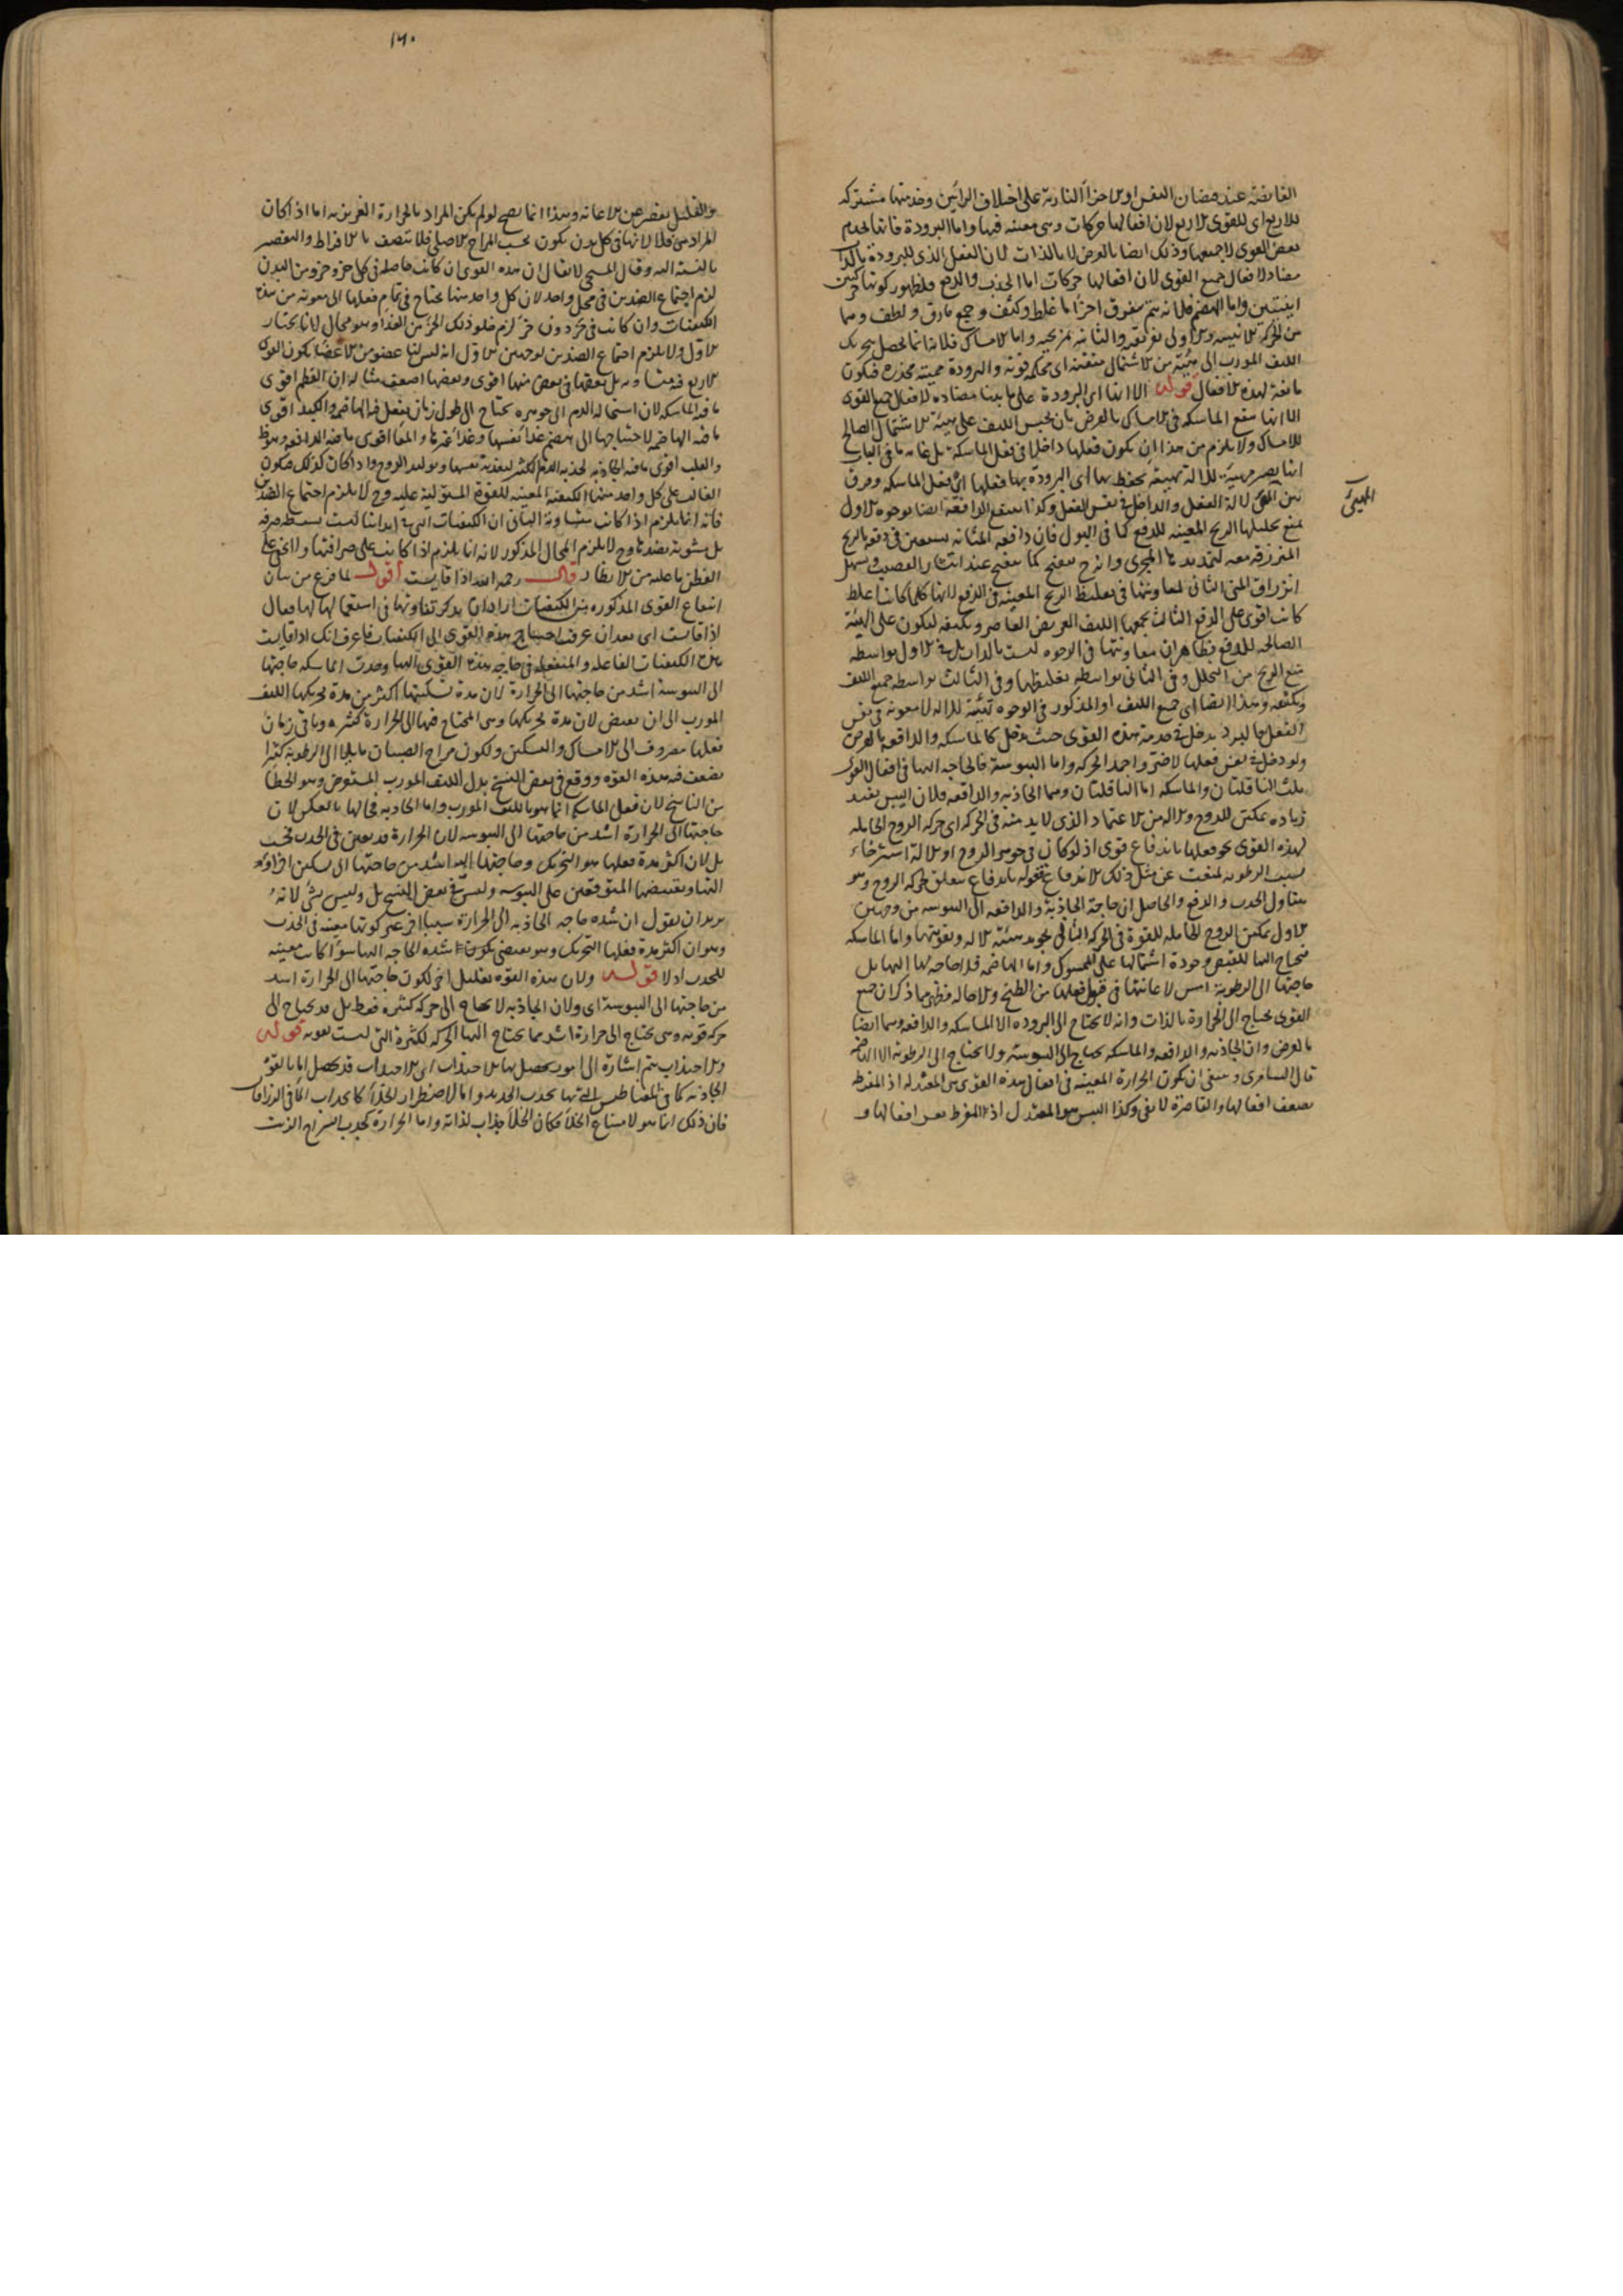 الفائضة عند فيضان النفس او للاجزاء النارية على اختلاف الرأيين وخدمتها مشتركة
للاربع اى للقوى الاربع لان افعالها حركات وهى معينة فيها واما البرودة فانها تخدم
بعض القوى لا جميعها وذلك ايضا بالعرض لا بالذات لان الفعل الذى للبرودة بالذات
مضاد لافعال جميع القوى لان افعالها حركات اما الجذب والدفع فلظهور كونهما حركتين
اينيتين واما الهضم فلانه يتم بتفريق اجزاء ما غلظ وكثف وجمع ما رق ولطف وهما
من الحركة الاينية والاولى تفريقية والثانية تمزيجية واما الامساك فلانه انما يحصل بتحريك
الليف المورب الى هيئة من الاشتمال متقنة اى محكمة قوية والبرودة مميتة مخدرة فتكون
مانعة لهذه الافعال قوله الا انها اى البرودة على ما بينا مضادة لافعال جميع القوى
الا انها تنفع الماسكة فى الامساك بالعرض بان تحبس الليف على هيئة الاشتمال الصالح
للامساك ولا يلزم من هذا ان يكون فعلها داخلا فى فعل الماسكة بل غاية ما فى الباب
انها تصير مهيئة للآلة تهيئة تحفظ بها اى البرودة بها فعلها اى فعل الماسكة وفرق
بين المهيئ لآلة الفعل والداخل فى نفس الفعل وكذا تنفع الدافعة ايضا بوجوه الاول
المهيئ
بمنع تحليلها الريح المعينة للدفع كما فى البول فان دافعة المثانة تستعين فى دفعه بالريح
المنزرقة معه لتمديدها المجرى
انزراق المنى الثانى لمعاونتها فى تغليظ الريح المعينة فى الدفع لانها كلما كانت اغلظ
كانت اقوى على الدفع الثالث بجمعها الليف العريض العاصر وتكثيفه ليكون على الهيئة
الصالحة للدفع فظاهر ان معاونتها فى الوجوه ليست بالذات بل فى الاول بواسطة
منع الريح من التحلل وفى الثانى بواسطة تغليظها وفى الثالث بواسطة جميع الليف
وتكثيفه وهذا ايضا اى جمع الليف او المذكور فى الوجوه تهيئة للآلة لا معونة فى نفس
الفعل فالبرد يدخل فى خدمة هذه القوى حيث يدخل كالماسكة والدافعة بالعرض
ولو دخل فى نفس فعلها لاضر واخمد الحركة واما اليبوسة فالحاجة اليها فى افعال القوى
ثلث الناقلتان والماسكة اما الناقلتان وهما الجاذبة والدافعة فلان اليبس يفيد
زيادة تمكين للروح والآلة من الاعتماد الذى لا بد منه فى الحركة اى حركة الروح الحاملة
لهذه القوى نحو فعلها باندفاع قوى اذ لو كان فى جوهر الروح او الآلة استرخاء
بسبب الرطوبة لمنعت عن مثل ذلك الاندفاع فقوله باندفاع متعلق بحركة الروح وهو
يتناول الجذب والدفع والحاصل ان حاجة الجاذبة والدافعة الى اليبوسة من وجهين
الاول تمكين الروح الحاملة للقوة فى الحركة الثانى تجويد هيئة الآلة وتقويتها واما الماسكة
فتحتاج اليها للقبض وجودة اشتمالها على الممسوك واما الهاضمة فلا حاجة لها اليها بل
حاجتها الى الرطوبة امس لاعانتها فى قبول فعلها من الطبخ والاحالة فظهر مما ذكر ان جميع
القوى تحتاج الى الحرارة بالذات وانه لا يحتاج الى البرودة الا الماسكة والدافعة وهما ايضا
بالعرض وان الجاذبة والدافعة والماسكة تحتاج الى اليبوسة ولا تحتاج الى الرطوبة الا الهاضمة
قال السامرى وينبغى ان تكون الحرارة المعينة فى افعال هذه القوى هى المعتدلة اذ المفرطة
تضعف افعالها والقاصرة لا تفى وكذا اليبس هو المعتدل اذ المفرط افعالها و
١٢٠
والقليل يقصر عن الاعانة وهذا انما يصح لو لم يكن المراد بالحرارة الغريزية اما اذا كان
المراد هى فلا لانها فى كل بدن تكون بحسب المزاج الاصلى فلا تتصف بالافراط والتقصير
بالنسبة اليه وقال المسيحى لا يقال ان هذه القوى ان كانت حاصلة فى كل جزء جزء من البدن
لزم اجتماع الضدين فى محل واحد لان كل واحد منها يحتاج فى تمام فعلها الى معونة من هذه
الكيفيات وان كانت فى جزء دون جزء لزم خلو ذلك الجزء من الغذاء وهو محال لانا نختار
الاول ولا يلزم اجتماع الضدين لوجهين الاول انه ليس لنا عضو من الاعضاء تكون القوى
الاربع فيه متساوية بل بعضها فى بعض منها اقوى وبعضها اضعف مثاله ان العظم اقوى
ما فيه الماسكة لان استحالة الدم الى جوهره تحتاج الى طول زمان ينفعل فيه الهاضمة والكبد اقوى
ما فيه الهاضمة لاحتياجها الى هضم غذاء نفسها وغذاء غيرها والمعاء اقوى ما فيه الدافعة
والقلب اقوى ما فيه الجاذبة لجذبه الدم الكثير لتغذية نفسها وتوليد الروح واذا كان كذلك فتكون
الغالب على كل واحد منها الكيفية المعينة للقوة المستولية عليه وح لا يلزم اجتماع الضدين
فانه انما يلزم اذا كانت متساوية الثانى ان الكيفيات التى فى ابداننا ليست بسيطة صرفة
بل مشوبة بضدها وح لا يلزم المحال المذكور لانه انما يلزم اذا كانت على صرافتها ولا يخفى على
الفطن ما عليه من الانظار قال رحمه الله اذا قايست اقول لما فرغ من بيان
انتفاع القوى المذكورة بهذه الكيفيات اراد ان يذكر تفاوتها فى استعمالها لها فقال
اذا قايست اى بعد ان عرف احتياج هذه القوى الى الكيفيات فاعرف انك اذا قايست
بين الكيفيات الفاعلة والمنفعلة فى حاجة هذه القوى اليها وجدت الماسكة حاجتها
الى اليبوسة اشد من حاجتها الى الحرارة لان مدة تسكينها اكثر من مدة تحريكها الليف
المورب الى ان يقبض لان مدة تحريكها وهى المحتاج فيها الى الحرارة كثيرة وباقى زمان
فعلها مصروف الى الامساك والتسكين ولكون مزاج الصبيان مايلا الى الرطوبة كثيرا
يضعف فيهم هذه القوة ووقع فى بعض النسخ بدل الليف المورب المستعرض وهو الخطأ
من الناسخ لان فعل الماسكة انما هو بالليف المورب واما الجاذبة فحالها بالعكس لان
حاجتها الى الحرارة اشد من حاجتها الى اليبوسة لان الحرارة قد تعين فى الجذب
بل لان اكثر مدة فعلها هو التحريك وحاجتها اليه اشد من حاجتها الى تسكين اجزاء آلة
التها وتقبيضها المتوقفين على اليبوسة وليس فى بعض النسخ بل وليس بشئ لانه
يريد ان يقول ان شدة حاجة الجاذبة الى الحرارة سببا اخر غير كونها معينة فى الجذب
وهو ان اكثر مدة فعلها التحريك وهو يقتضى شدة الحاجة اليها سواء كانت معينة
للجذب او لا قوله ولان هذه القوة تعليل اخر لكون حاجتها الى الحرارة اشد
من حاجتها الى اليبوسة اى ولان الجاذبة لا تحتاج الى حركة كثيرة فقط بل قد تحتاج الى
حركة قوية وهى تحتاج الى حرارة اشد مما يحتاج اليها الحركة الكثيرة التى ليست بقوية قوله
والاجتذاب يتم اشارة الى امور يحصل بها الاجتذاب اى الاجتذاب قد يحصل اما بالقوة
الجاذبة كما فى المغناطيس التى بها يجذب الحديد واما لاضطرار الخلاء كانجذاب الماء فى الزراقات
فان ذلك انما هو لامتناع الخلاء فكان الخلاء جذاب لذاته واما الحرارة كجذب السراج الزيت